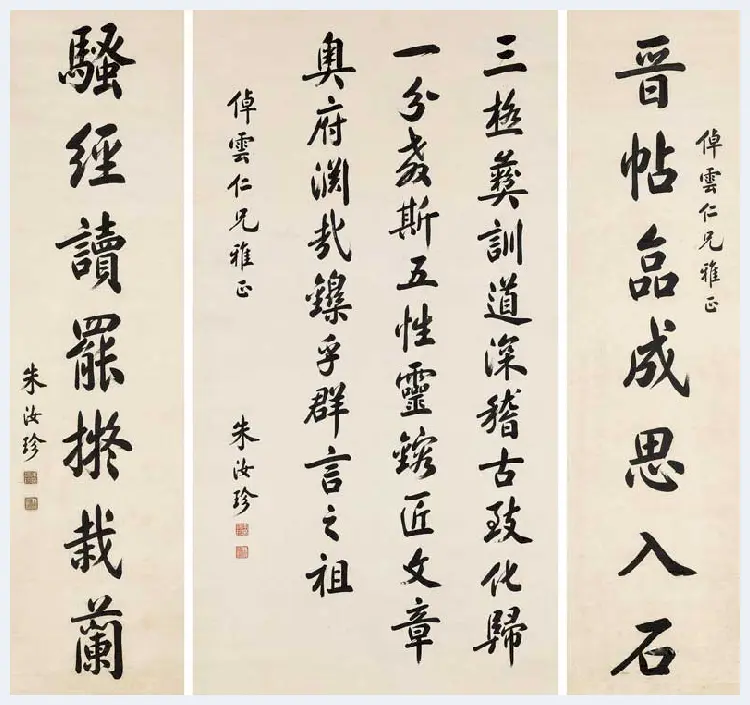 倬雲仁兄雅正
晋帖臨成思入石
三極彝訓道深稽古致化歸
一分教斯五性靈鎔匠文章
奧府渊哉鑠乎群言之祖
倬雲仁兄雅正
朱汝珍
騷經讀罷擬栽蘭
朱汝珍